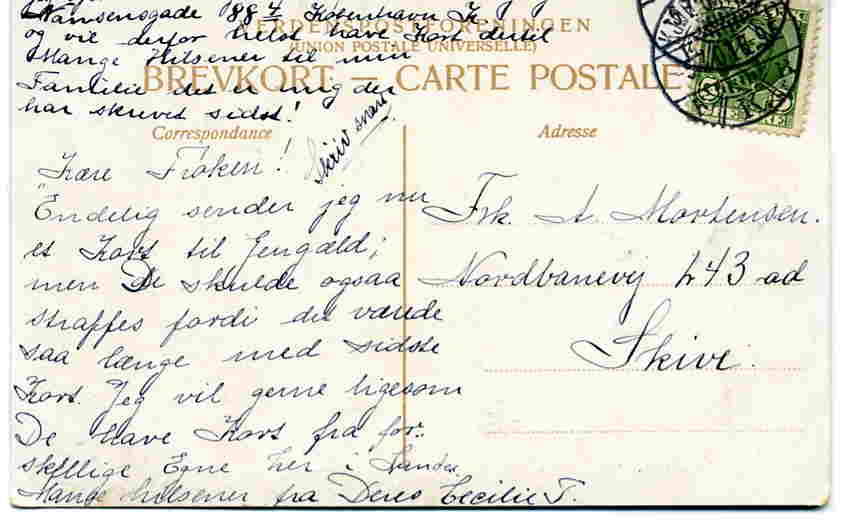 Nansensgade 88 4 København K
og vil derfor helst have Kort dertil
Mange Hilsener til min
Familie det er mig der
har skrevet sidst!
VERDENSPOSTFORENINGEN
(UNION POSTALE UNIVERSELLE)
BREVKORT — CARTE POSTALE
Correspondance
Adresse
Skriv snart
Kære Frøken!
Endelig sender jeg nu
et Kort til Gengæld;
men De skulde ogsaa
straffes fordi det varede
saa længe med sidste
Kort. Jeg vil gerne ligesom
De have Kort fra for-
skellige Egne her i Landet
Mange hilsener fra Deres Cecilie T.
Frk. A. Mortensen.
Nordbanevej 243 ad
Skive.